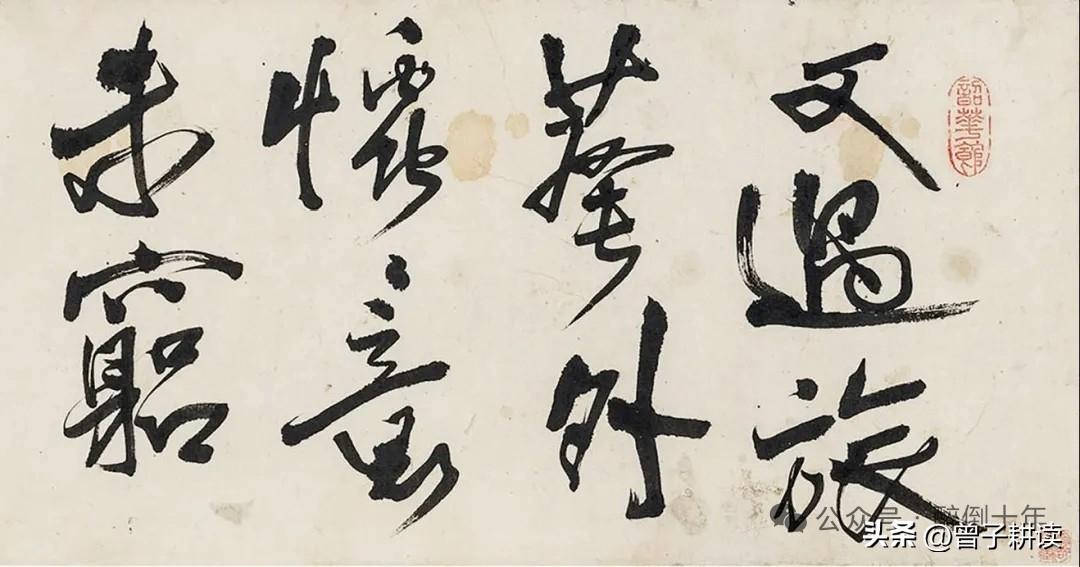 又過旅
外
懷意
未窮
韶華館
公众号·醉倒十年
头条 @曾子耕读